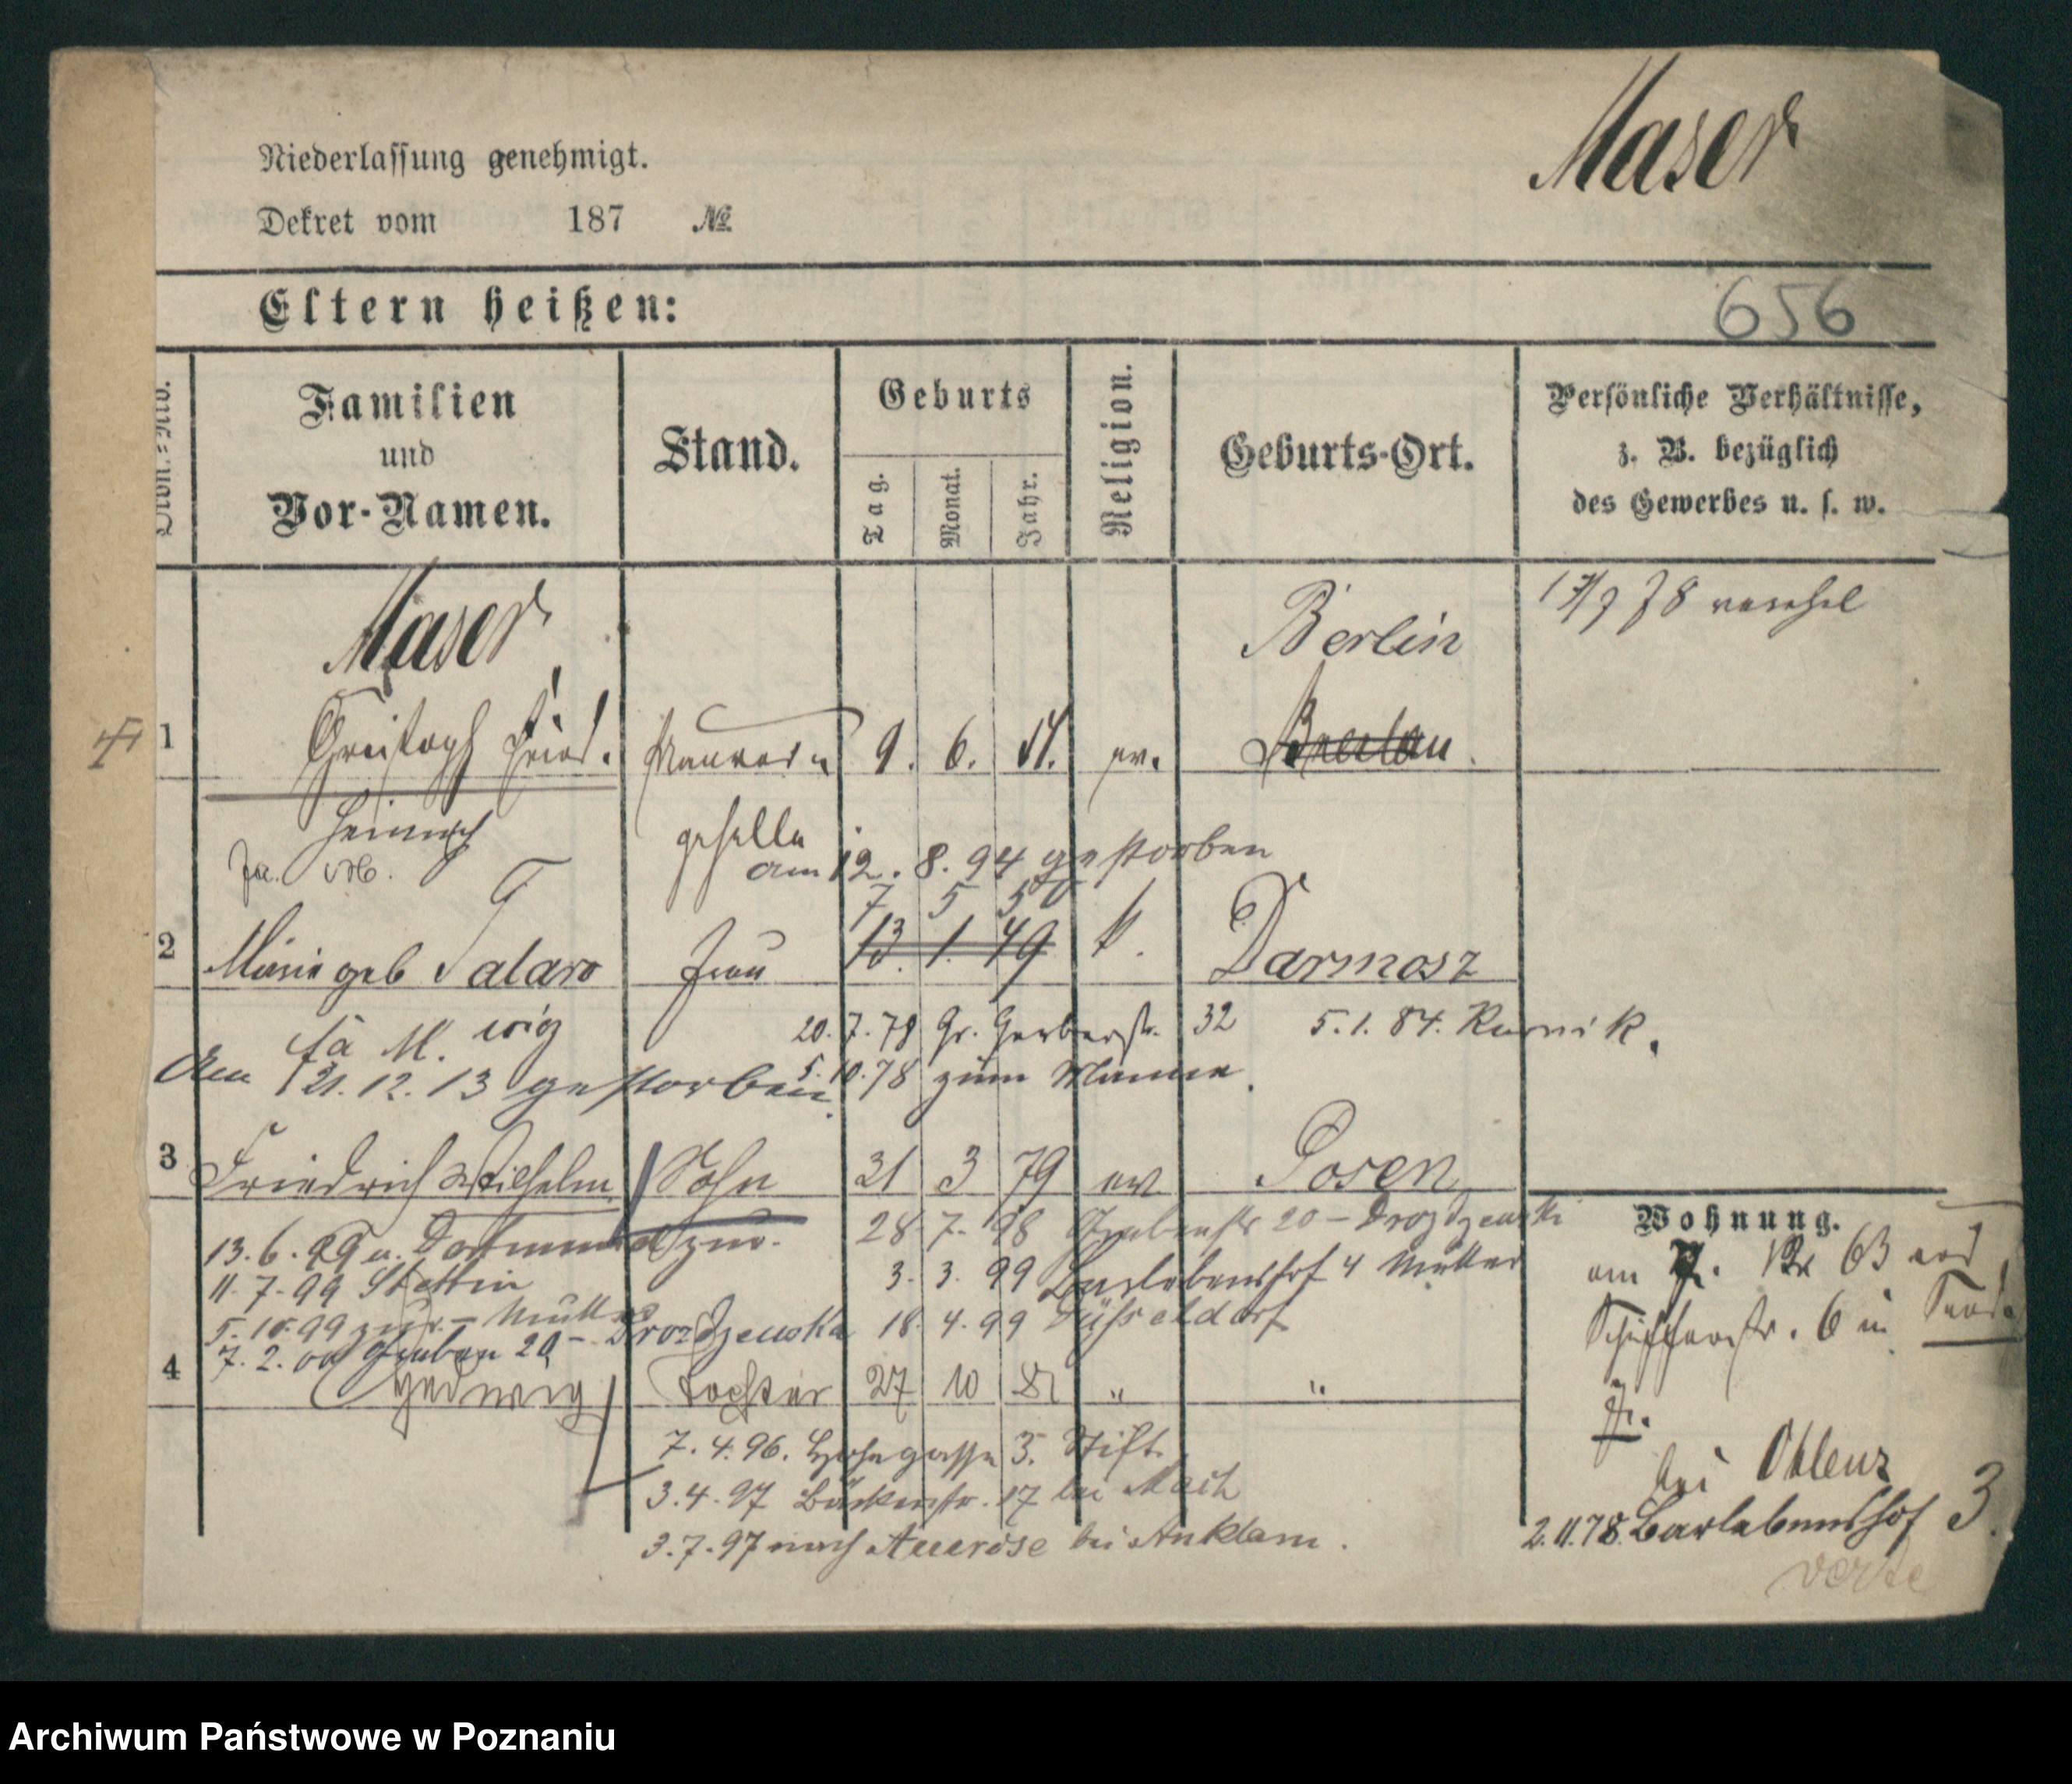 Maser
Niederlassung genehmigt.
Dekret vom 187 №
Eltern heißen:
656
Familien
und
Vor-Namen.
Stand.
Geburts
Tag.
Monat.
Jahr.
Religion.
Geburts-Ort.
Persönliche Verhältnisse,
z. B. bezüglich
des Gewerbes u. s. w.
Maser
Berlin
1 Christoph Fried. Maurer 9. 6. ev. Breslau
Heinrich geselle
am 12. 8. 94 gestorben
7 5 50
2 Marie geb Talaro Frau 13. 1. 49 k. Darmosz
20. 7. 78 Gr. Gerberstr. 32 5. 1. 84. Kurnik.
wig
5. 10. 78 zum Manne.
Am 21. 12. 13 gestorben.
3 Friedrich Wilhelm Sohn 31 3 79 ev. Posen
28 7. 98 Grabenstr 20 – Drozdzewski
13. 6. 99 a. Dortmund zur.
3. 3. 99 Barlebenshof 4 Mutter
11. 7. 99 Stettin
18. 4. 99 Düsseldorf
5. 10. 99 zur. – Mutter
7. 2. 00 Graben 20 – Drozdzewska
4 Hedwig Tochter 27 10 81 " "
7. 4. 96. 3. Stift.
3. 4. 97 Bäckerstr. 17 bei Mach
3. 7. 97 nach bei Anklam.
Wohnung.
am 63 und
Schifferstr. 6 in
bei
2. 11. 78. Barlebenshof 3.
verte
Archiwum Państwowe w Poznaniu